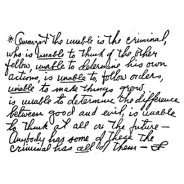 * Amongst the unable is the criminal,
who is unable to think of the other
fellow, unable to determine his own
actions, is unable to follow orders,
unable to make things grow,
is unable to determine the difference
between good and evil, is unable
to think at all on the future —
Anybody has some of these the
criminal has all of them —